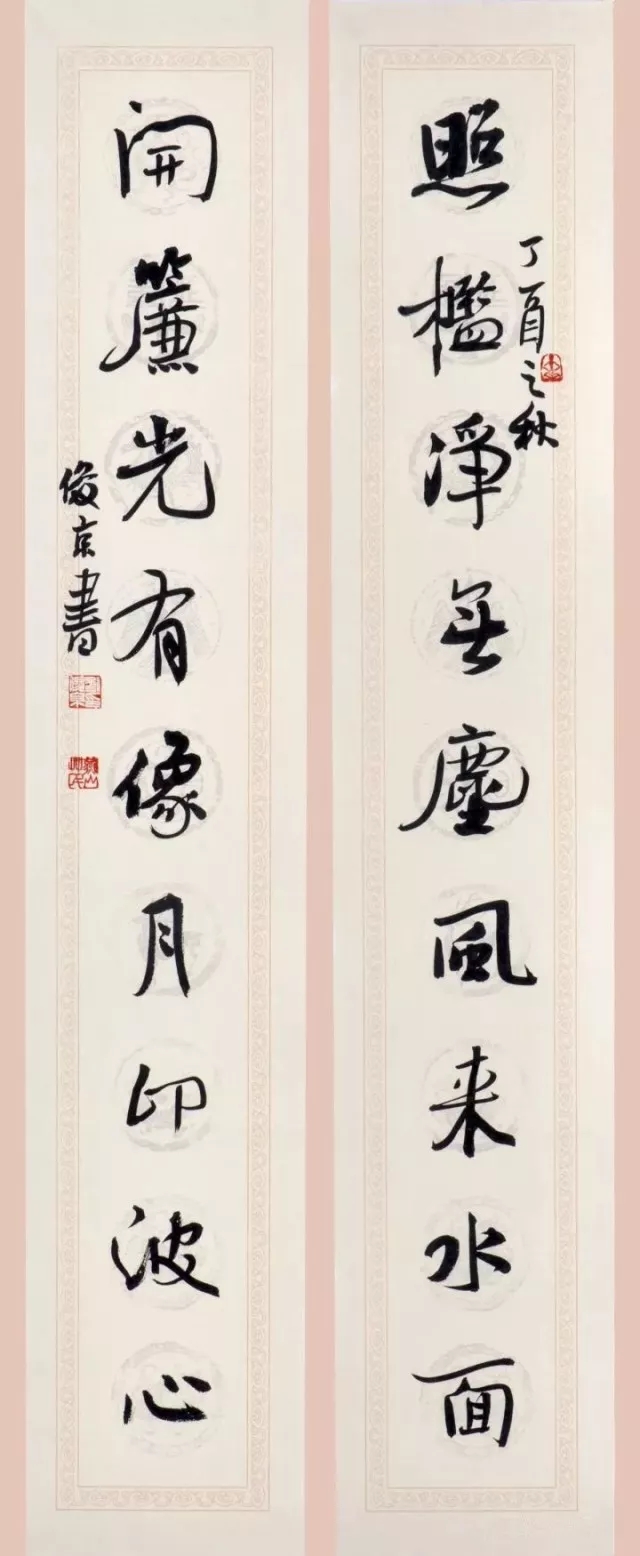 照檻淨無塵風来水面
丁酉之秋
開簾光有像月印波心
俊京書